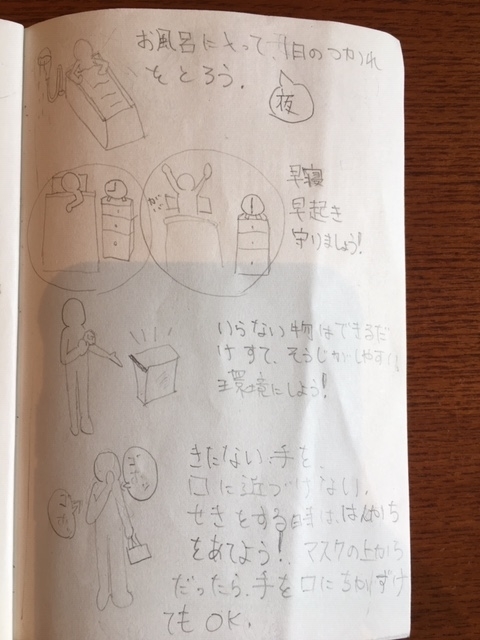 お風呂に入って、1日のつかれ
をとろう。
夜
早寝
早起き
守りましょう!
いらない物はできるだ
けすて、そうじがしやすい
環境にしよう!
きたない手を、
口に近づけない。
せきをする時は、はんかち
をあてよう! マスクの上から
だったら、手を口にちかずけ
てもOK。